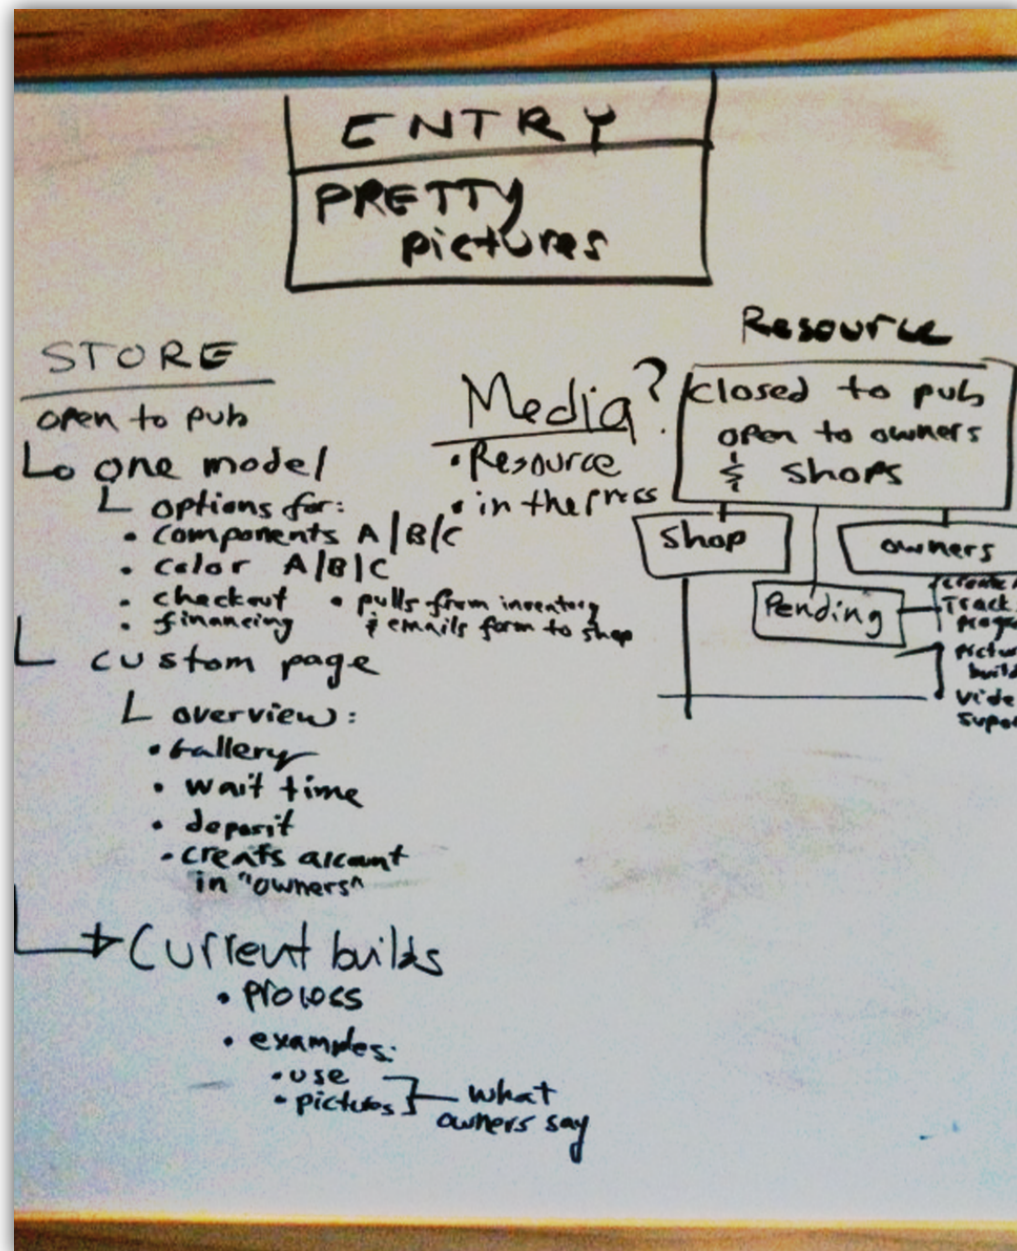 ENTRY
PRETTY
pictures
STORE
open to pub
one model
options for:
• components A/B/C
• color A/B/C
• checkout • pulls from inventory
& emails form to shop
• financing
custom page
overview:
• Gallery
• wait time
• deposit
• creats account
in "owners"
Current builds
• process
• examples:
• use
• pictures
what
owners say
Media?
• Resource
• in the press
Resource
closed to pub
open to owners
& shops
shop
owners
Pending
Track